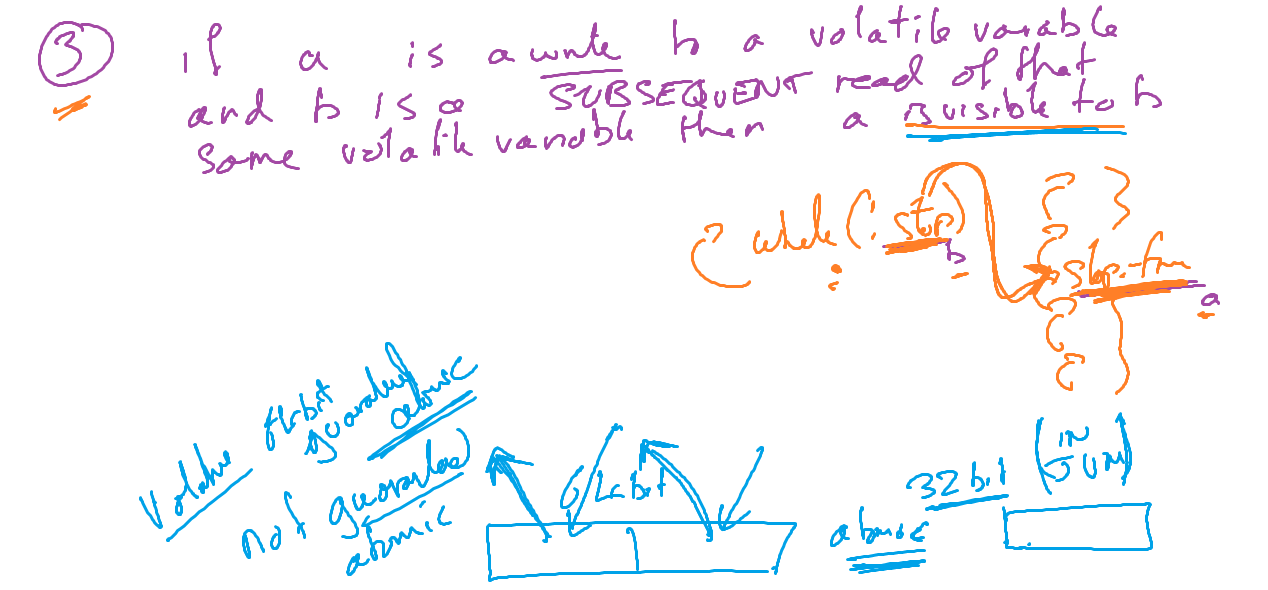 3
if a is a write to a volatile variable
and b is a SUBSEQUENT read of that
same volatile variable then a is visible to b
while (! stop)
b
stop = true
a
volatile 64bit guaranteed atomic
not guaranteed atomic
64bit
atomic
32bit (IN JVM)